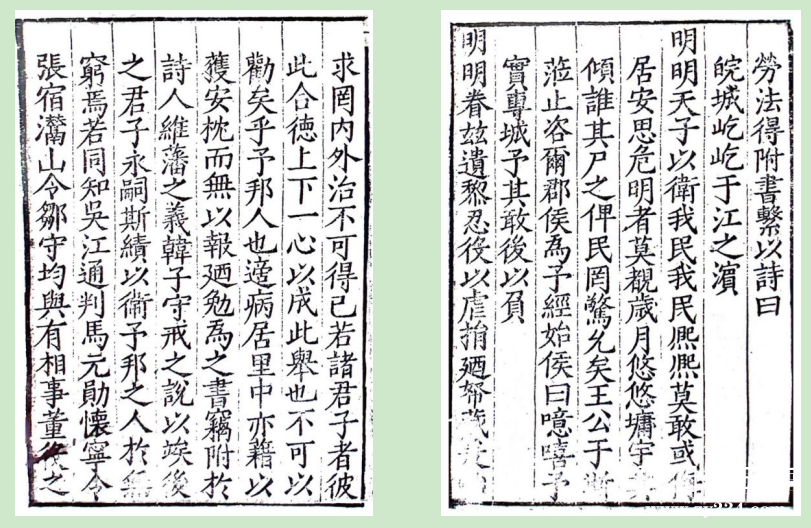 求罔内外治不可得已若諸君子者彼
此合徳上下一心以成此舉也不可以
勸矣乎予邦人也適病居里中亦藉以
獲安枕而無以報廼勉為之書竊附於
詩人維藩之義韓子守戒之說以竢後
之君子永嗣斯績以衞予邦之人於無
窮焉若同知吳江通判馬元勛懷寧令
張宿灊山令鄒守均與有相事董役之
勞法得附書繫以詩曰
皖城屹屹于江之濱
明明天子以衛我民我民熈熈莫敢或侮
居安思危明者莫覩歳月悠悠墉宇
傾誰其尸之俾民罔驚允矣王公于斯
蒞止咨爾郡侯為予經始侯曰噫嘻予
實專城予其敢後以負
明明眷玆遺黎忍役以虐捐廼帑藏